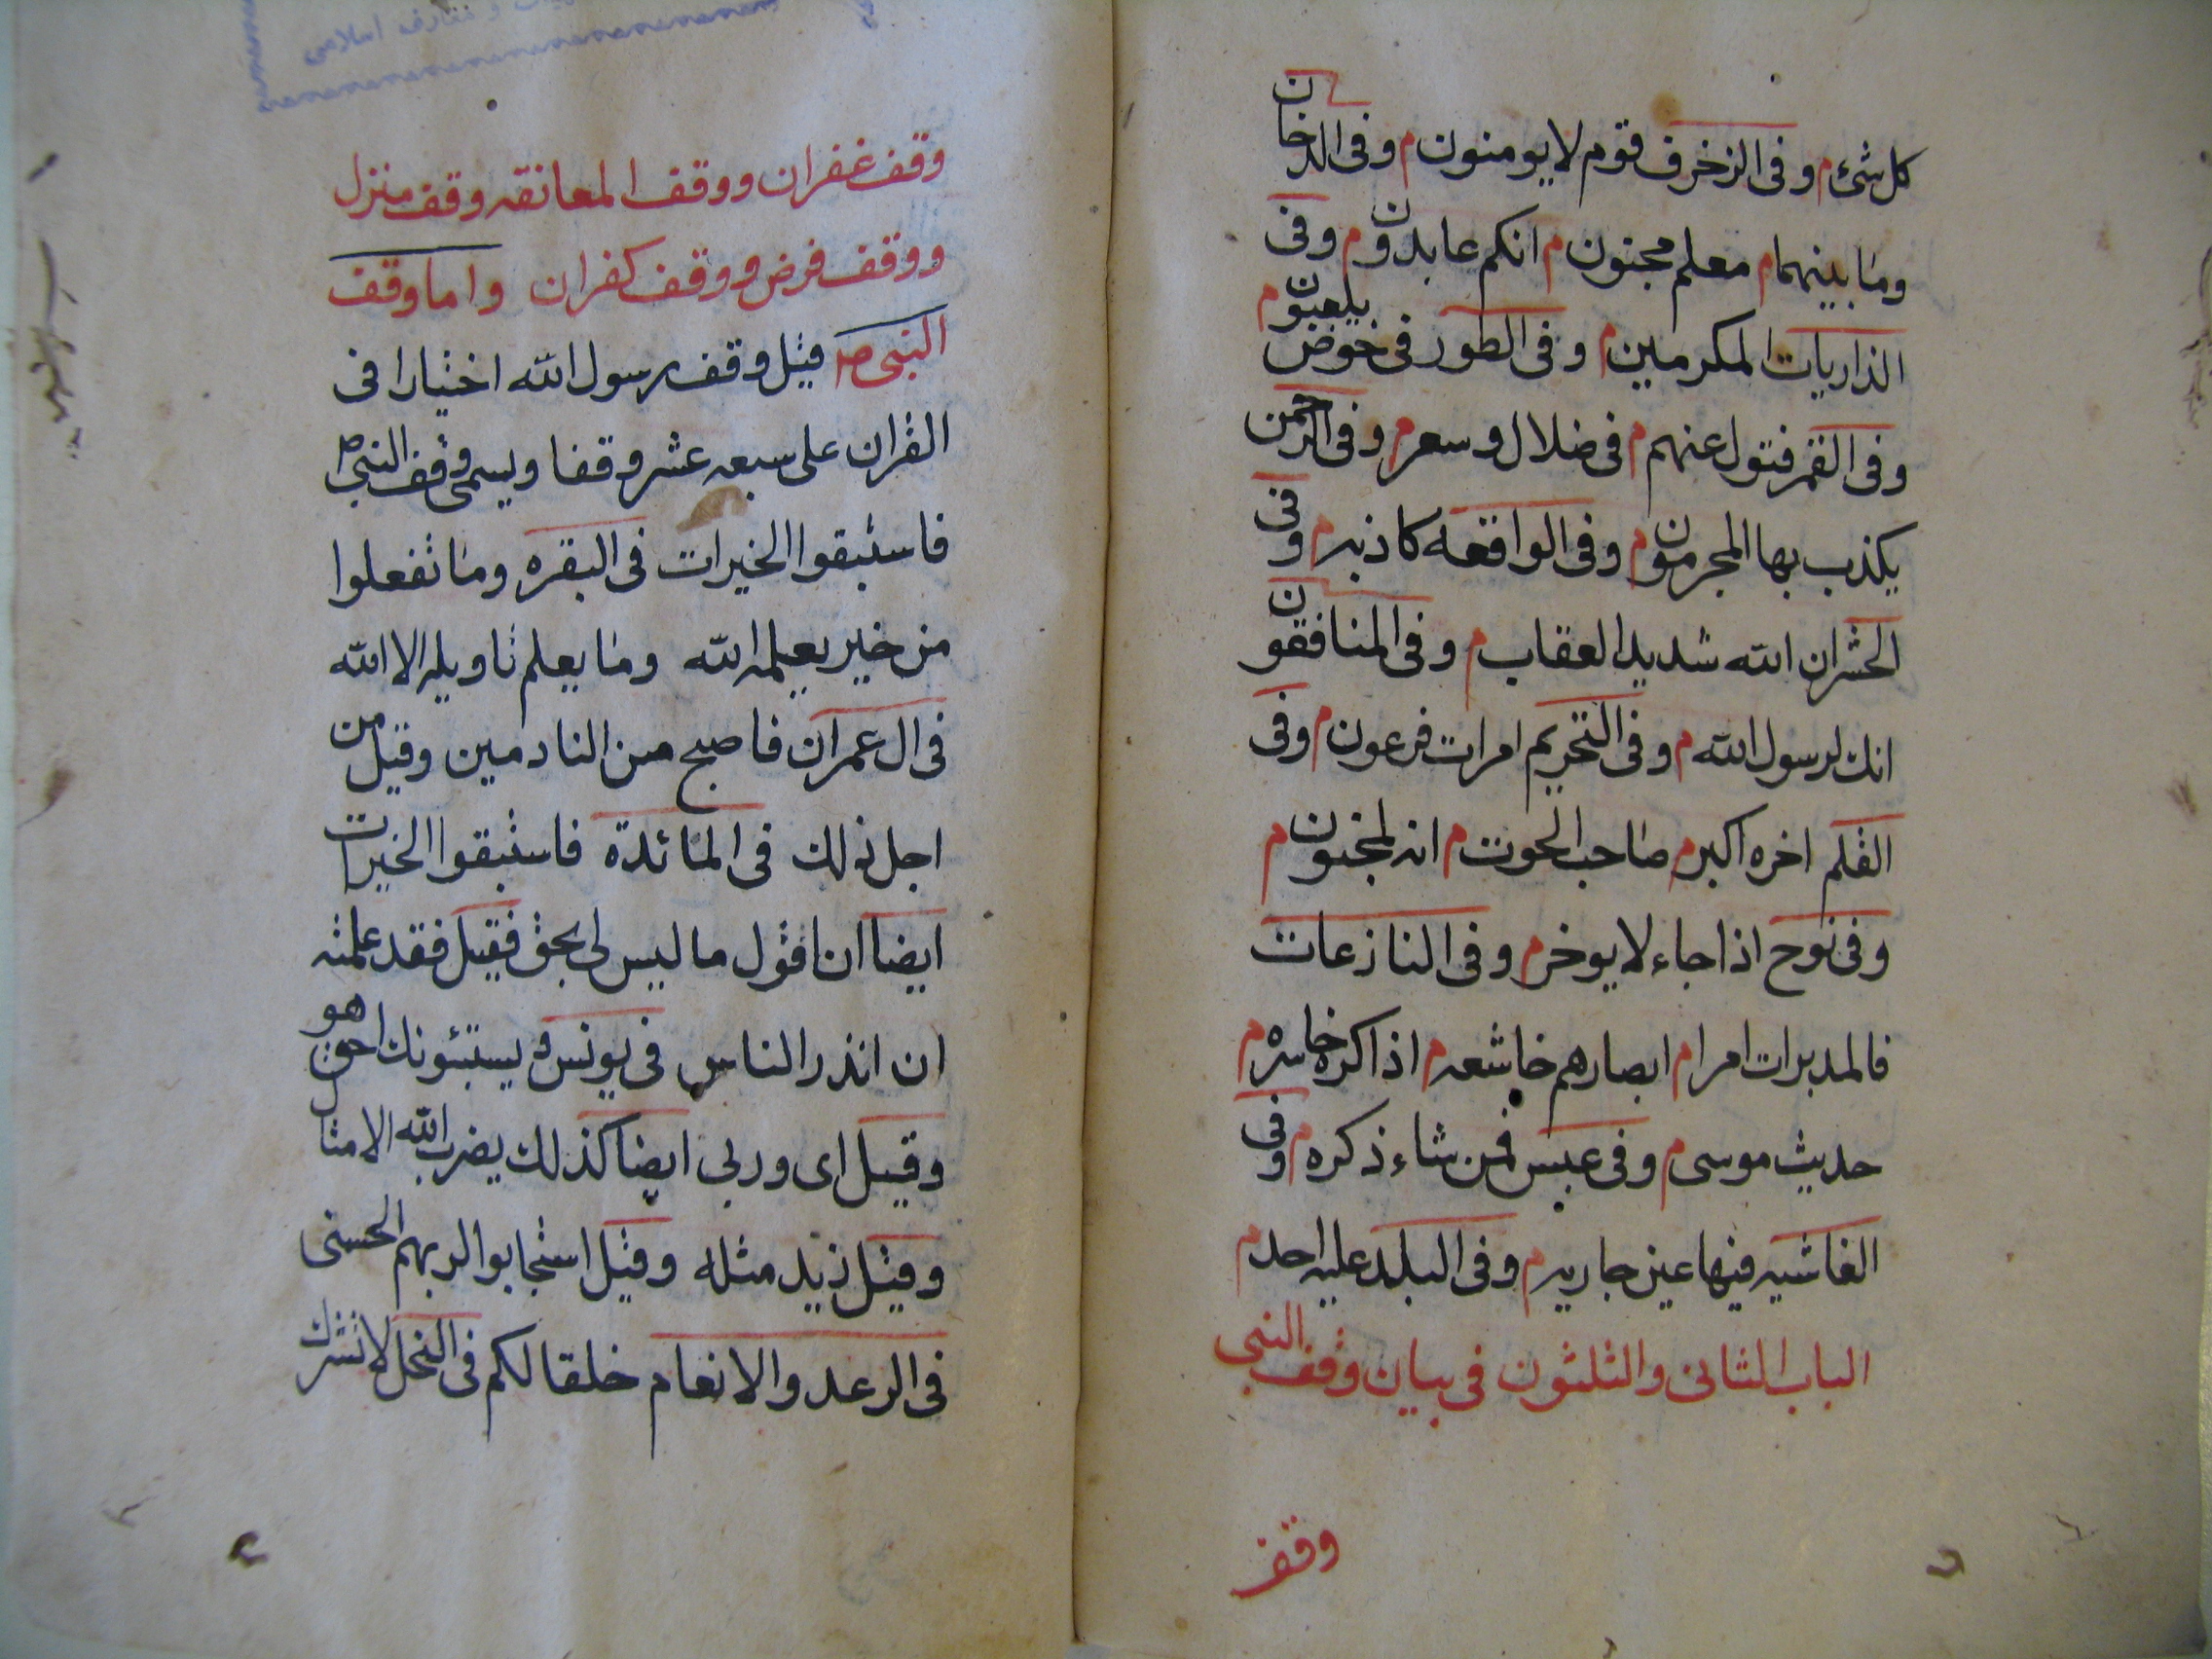 كل شئ م وفى الزخرف قوم لا يومنون م وفى الدخان
وما بينهما م معلم مجنون م انكم عابدون م وفى
الذاريات المكرمين م وفى الطور فى خوض يلعبون م
وفى القمر فتول عنهم م فى ضلال وسعر م وفى الرحمن
يكذب بها المجرمون م وفى الواقعه كاذبه م وفى
الحشر ان الله شديد العقاب م وفى المنافقون
انك لرسول الله م وفى التحريم امرات فرعون م وفى
القلم اخره اكبر م صاحب الحوت م انه لمجنون م
وفى نوح اذا جاء لا يوخر م وفى النازعات
فالمدبرات امرا م ابصارهم خاشعه م اذا كره خاسره م
حديث موسى م وفى عبس فمن شاء ذكره م وفى
الغاشيه فيها عين جاريه م وفى البلد عليه احد م
الباب الثانى والثلثون فى بيان وقف النبى
وقف
وقف غفران ووقف المعانقه وقف منزل
ووقف فرض ووقف كفران واما وقف
النبى ص قيل وقف رسول الله اختيارا فى
القران على سبعه عشر وقفا ويسمى وقف النبى ص
فاستبقوا الخيرات فى البقره وما تفعلوا
من خير يعلمه الله وما يعلم تاويله الا الله
فى ال عمران فاصبح من النادمين وقيل من
اجل ذلك فى المائدة فاستبقوا الخيرات
ايضا ان اقول ما ليس لى بحق فقيل فقد علمته
ان انذر الناس فى يونس و يستنبئونك احق هو
وقيل اى وربى ايضا كذلك يضرب الله الامثال
وقيل زيد مثله وقيل استجابوا لربهم الحسنى
فى الرعد والانعام خلقا لكم فى النحل لا تشرك